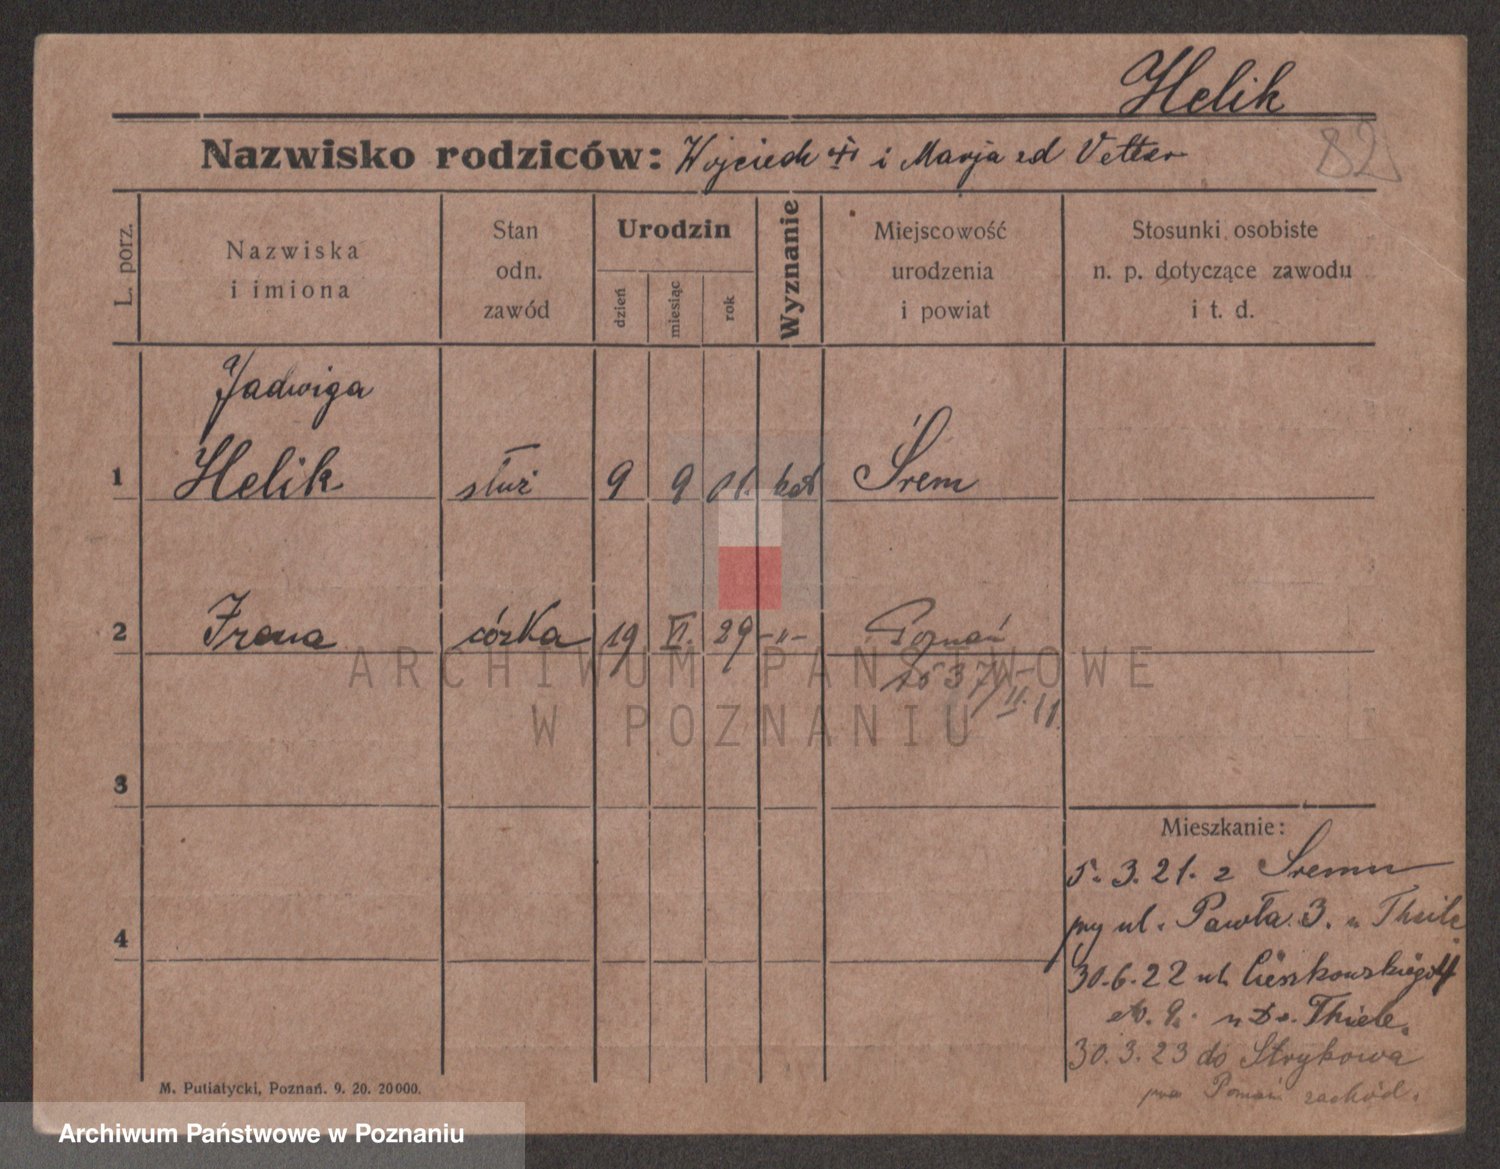 Helik
82
Nazwisko rodziców: Wojciech i Marja zd Vetter
L. porz.
Nazwiska
i imiona
Stan
odn.
zawód
Urodzin
dzień
miesiąc
rok
Wyznanie
Miejscowość
urodzenia
i powiat
Stosunki osobiste
n. p. dotyczące zawodu
i t. d.
Jadwiga
1 Helik służ 9 9 01. kat Śrem
2 Irena córka 19 VI. 29 -"- Poznań
1537/II. 11.
ARCHIWUM PAŃSTWOWE
W POZNANIU
3
Mieszkanie:
5. 3. 21. z Śremu
przy ul. Pawła 3. u Thiele
4
30.6.22 ul. Cieszkowskiego 4
u Dr. Thiele.
30.3.23 do Strykowa
Poznań zachód.
M. Putiatycki, Poznań. 9. 20. 20000.
Archiwum Państwowe w Poznaniu